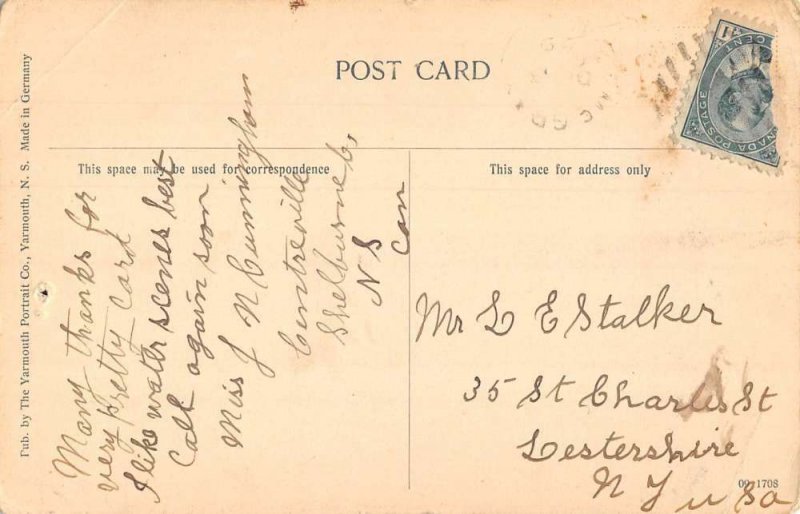 POST CARD
1
CENT
CANADA POSTAGE
This space may be used for correspondence
This space for address only
Many thanks for
very pretty card
I like water scenes best
Call again soon
Miss J N Cunningham
Centreville
Shelburne Co
N S
Can
Mr L E Stalker
35 St Charles St
Lestershire
N Y U S a
09 1708
Pub. by The Yarmouth Portrait Co., Yarmouth, N. S. Made in Germany